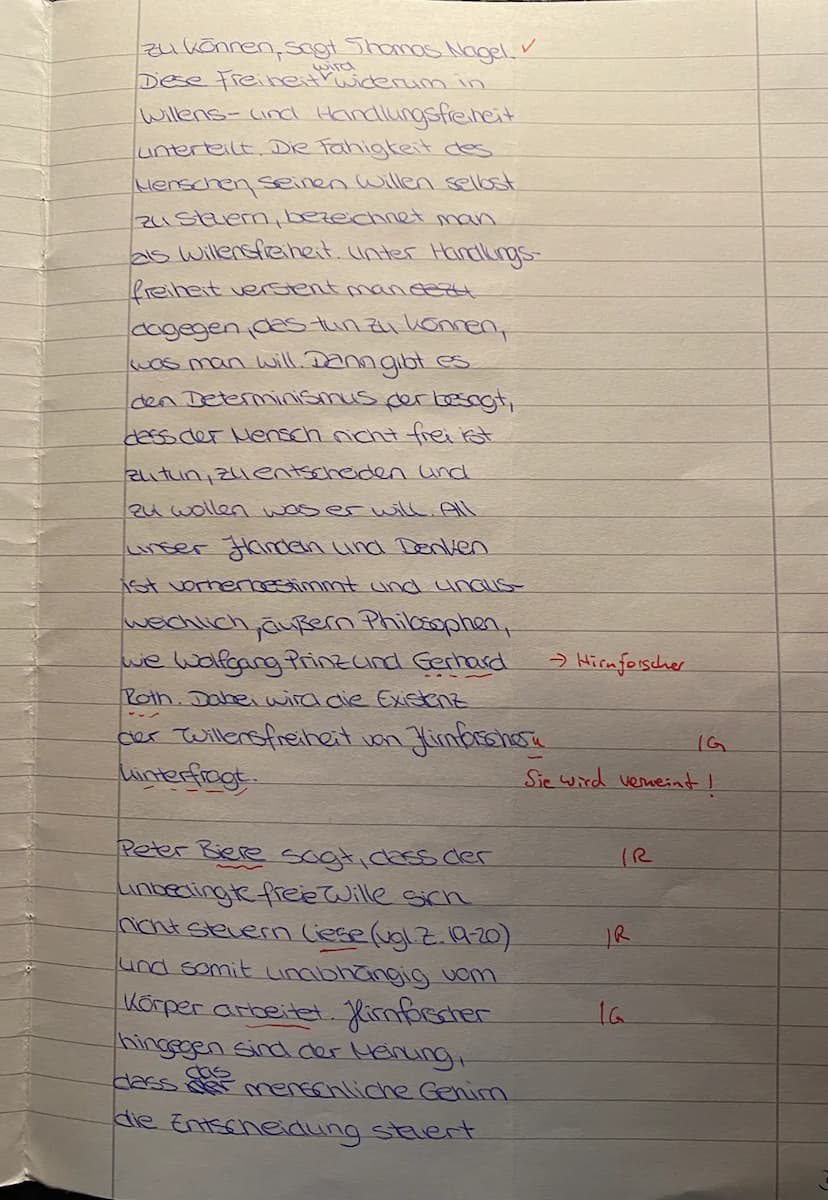 zu können, sagt Thomas Nagel. ✓
wird
Diese Freiheit widerum in
Willens- und Handlungsfreiheit
unterteilt. Die Fähigkeit des
Menschen, seinen Willen selbst
zu steuern, bezeichnet man
als Willensfreiheit. Unter Handlungs-
freiheit versteht man
dagegen, das tun zu können,
was man will. Dann gibt es
den Determinismus, der besagt,
dass der Mensch nicht frei ist
zu tun, zu entscheiden und
zu wollen was er will. All
unser Handeln und Denken
ist vorherbestimmt und unaus-
weichlich, äußern Philosophen,
wie Wolfgang Prinz und Gerhard → Hirnforscher
Roth. Dabei wird die Existenz
der Willensfreiheit von Hirnforschern IG
hinterfragt. Sie wird verneint!
Peter Biere sagt, dass der IR
unbedingte freie Wille sich
nicht steuern liese (vgl. Z. 19-20) IR
und somit unabhängig vom
Körper arbeitet. Hirnforscher IG
hingegen sind der Meinung,
das
dass der menschliche Gehirn
die Entscheidung steuert